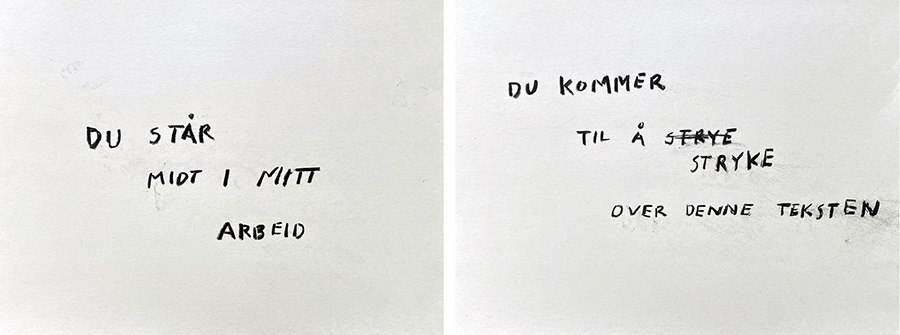 DU STÅR
MIDT I MITT
ARBEID
DU KOMMER
TIL Å STRYE
STRYKE
OVER DENNE TEKSTEN